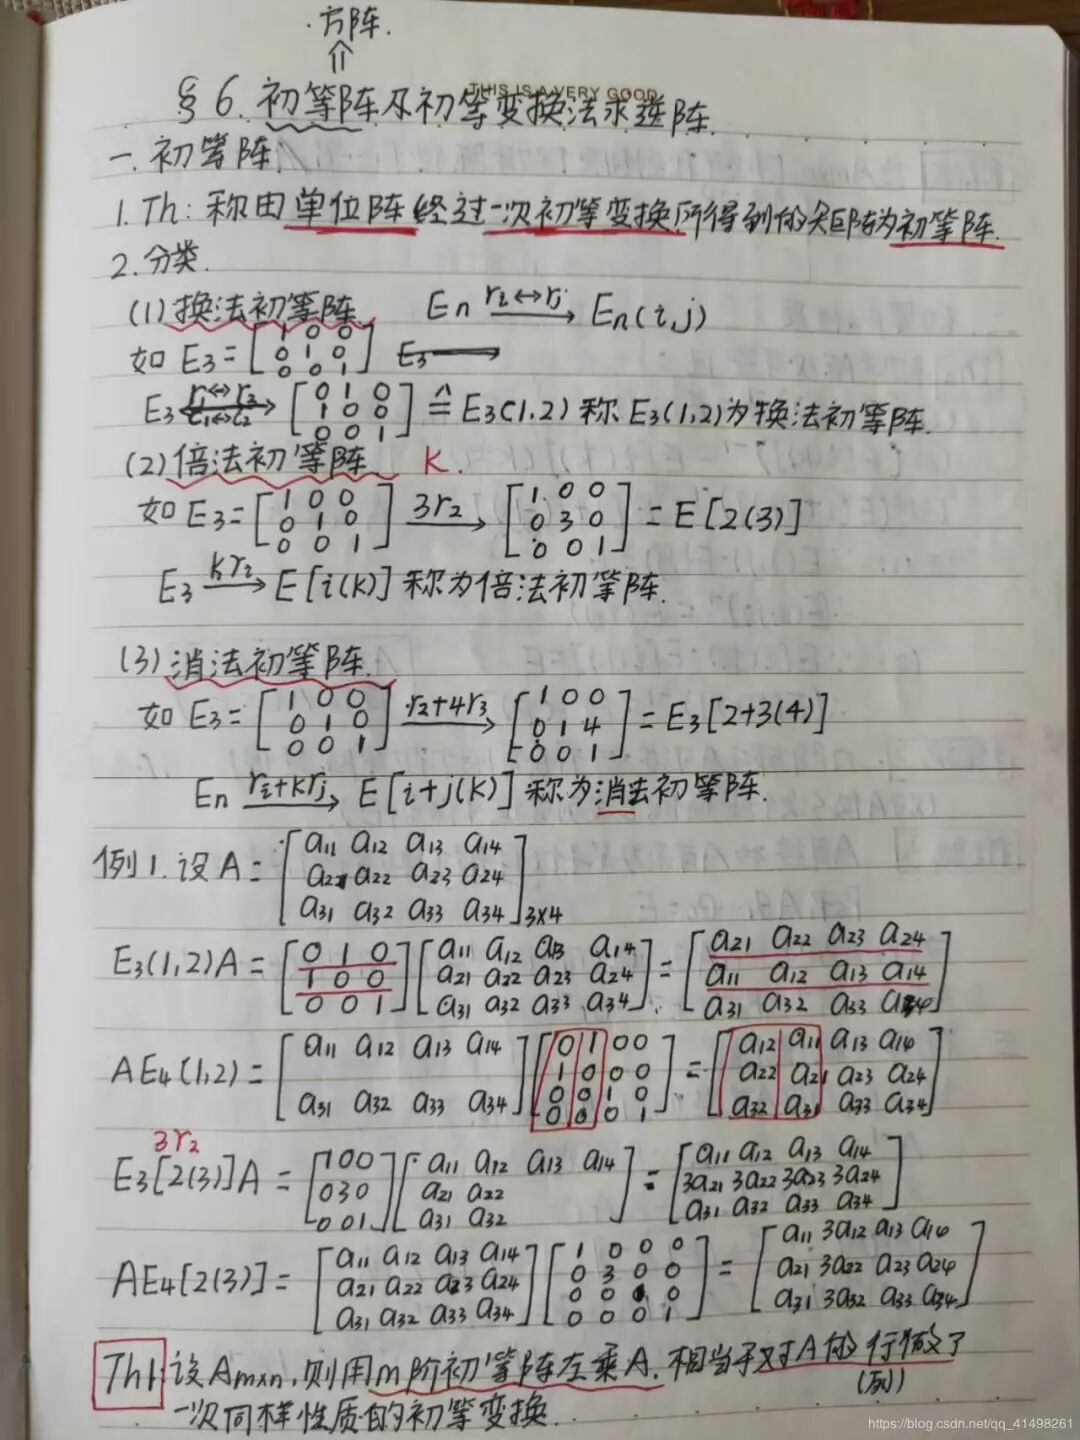 ·方阵.
⇑
THIS IS A VERY GOOD
§6. 初等阵及初等变换法求逆阵.
一. 初等阵:
1. Th: 称由单位阵经过一次初等变换所得到的矩阵为初等阵.
2. 分类.
(1) 换法初等阵 En ri↔rj → En(i,j)
如 E3 = [1 0 0; 0 1 0; 0 0 1] E3 →
E3 r1↔r2 c1↔c2 → [0 1 0; 1 0 0; 0 0 1] ≙ E3(1,2) 称 E3(1,2)为换法初等阵.
(2) 倍法初等阵 K.
如 E3 = [1 0 0; 0 1 0; 0 0 1] 3r2 → [1 0 0; 0 3 0; 0 0 1] = E[2(3)]
E3 kri → E[i(k)] 称为倍法初等阵.
(3) 消法初等阵.
如 E3 = [1 0 0; 0 1 0; 0 0 1] r2+4r3 → [1 0 0; 0 1 4; 0 0 1] = E3[2+3(4)]
En ri+krj → E[i+j(k)] 称为消法初等阵.
例1. 设 A = [a11 a12 a13 a14; a21 a22 a23 a24; a31 a32 a33 a34]3×4
E3(1,2)A = [0 1 0; 1 0 0; 0 0 1] [a11 a12 a13 a14; a21 a22 a23 a24; a31 a32 a33 a34] = [a21 a22 a23 a24; a11 a12 a13 a14; a31 a32 a33 a34]
AE4(1,2) = [a11 a12 a13 a14; a31 a32 a33 a34] [0 1 0 0; 1 0 0 0; 0 0 1 0; 0 0 0 1] = [a12 a11 a13 a14; a22 a21 a23 a24; a32 a31 a33 a34]
3r2
E3[2(3)]A = [1 0 0; 0 3 0; 0 0 1] [a11 a12 a13 a14; a21 a22; a31 a32] = [a11 a12 a13 a14; 3a21 3a22 3a23 3a24; a31 a32 a33 a34]
AE4[2(3)] = [a11 a12 a13 a14; a21 a22 a23 a24; a31 a32 a33 a34] [1 0 0 0; 0 3 0 0; 0 0 1 0; 0 0 0 1] = [a11 3a12 a13 a14; a21 3a22 a23 a24; a31 3a32 a33 a34]
Th1: 设 Am×n, 则用m阶初等阵左乘A. 相当于对A的行做了
(列)
一次同样性质的初等变换.
https://blog.csdn.net/qq_41498261